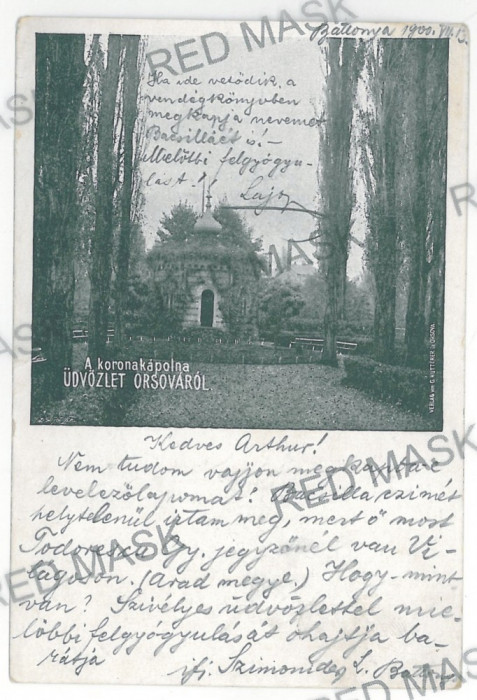 Battonya 1900. VII. 13.
Ha ide vetődik, a
vendégkönyvben
megkapja nevemet
Bacsilláét is! –
Mielőbbi felgyógyu-
lást!
Lajos
A koronakápolna
ÜDVÖZLET ORSOVÁRÓL.
VERLAG von G. HUTTERER in ORSOVA.
Kedves Arthur!
Nem tudom vajjon megkapta-e
levelezőlapomat! Bacsilla czimét
helytelenül irtam meg, mert ő most
Todorescu Gy. jegyzőnél van Vi-
lágoson. (Arad megye.) Hogy-mint
van? Szivélyes üdvözlettel mie-
lőbbi felgyógyulását óhajtja ba-
rátja
ifj. Szimonidesz L.
RED MASK
RED MASK
RED MASK
RED MASK
RED MASK
RED MASK